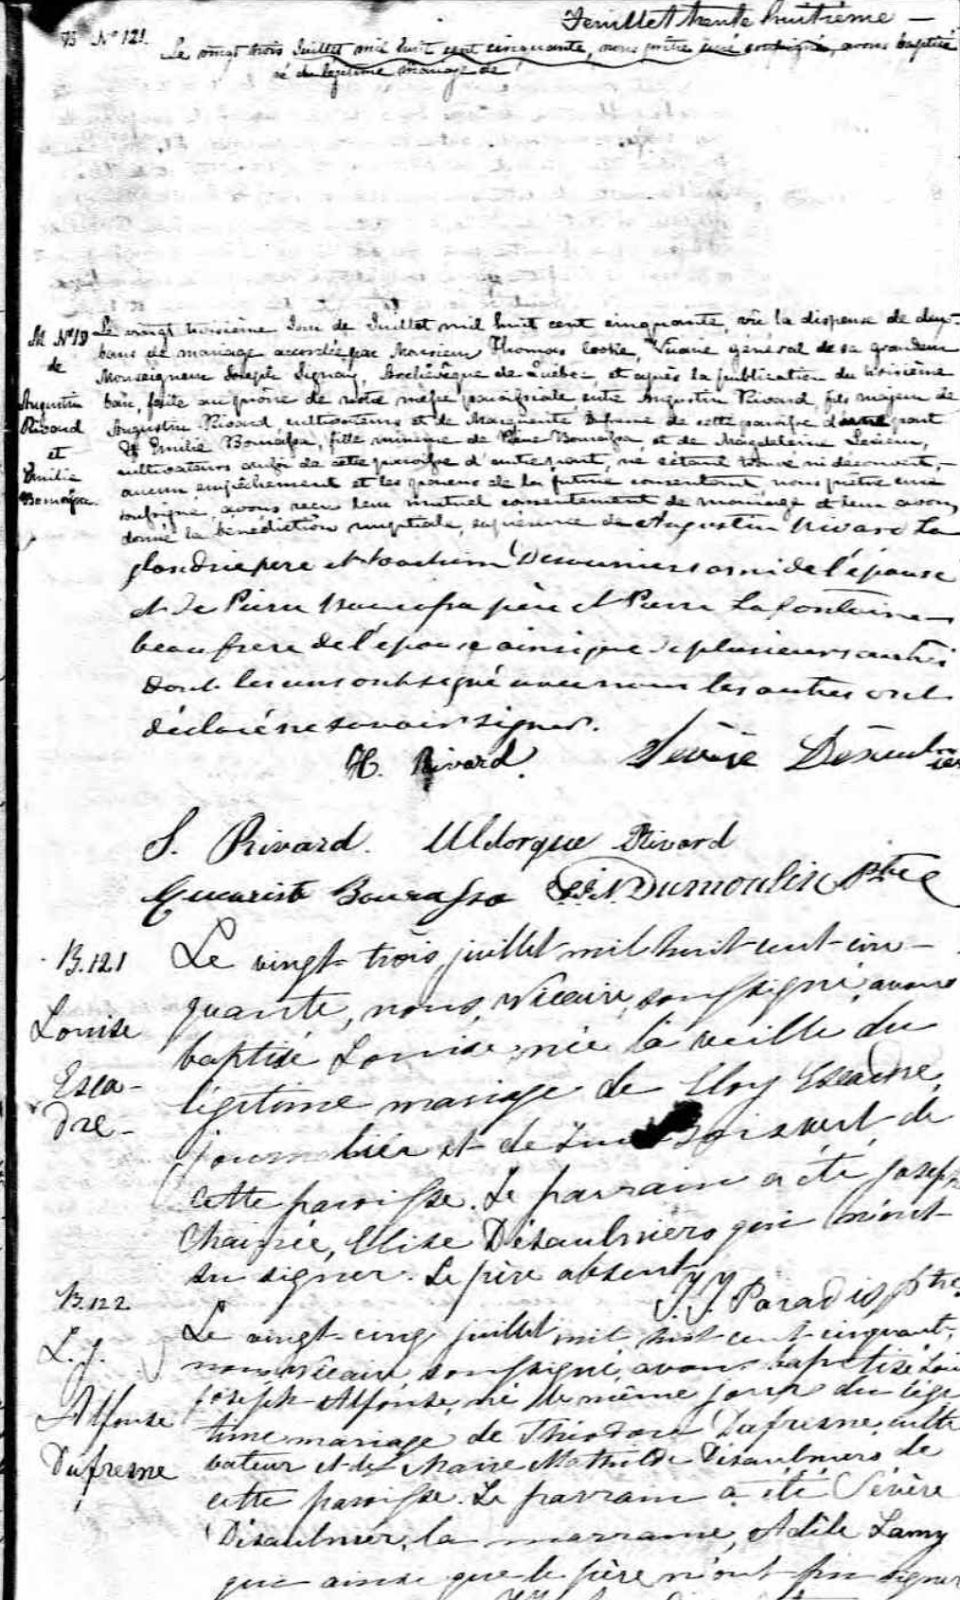 Feuillet trente huitième —
B N° 121.
Le vingt trois Juillet mil huit cent cinquante, nous prêtre curé soussigné, avons baptisé
né du légitime mariage de
M N° 19
de
Augustin
Rivard
et
Emilie
Bourassa.
Le vingt troisième Jour de Juillet mil huit cent cinquante, vu la dispense de deux
bans de mariage accordée par Monsieur Thomas Cooke, Vicaire général de sa grandeur
Monseigneur Joseph Signay, Archévêque de Québec, et après la publication du troisième
ban, faite au prône de notre messe paroissiale entre Augustin Rivard, fils majeur de
Augustin Rivard, cultivateur et de Marguerite de cette paroisse d'une part
Et Emilie Bourassa, fille mineure de Pierre Bourassa et de Magdeleine
cultivateurs aussi de cette paroisse d'autre part, ne s'étant trouvé ni découvert,
aucun empêchement et les parens de la future consentant nous prêtre curé
soussigné, avons reçu leur mutuel consentement de mariage et leur avons
donné la bénédiction nuptiale, en présence de Augustin Rivard La
glandrie père et Joachim Desaulniers ami de l'épouse
et de Pierre Bourassa père et Pierre Lafontaine
beaufrère de l'épouse ainsi que de plusieurs autres
dont les uns ont signé avec nous les autres ont
déclaré ne savoir signer.
H. Rivard Sévère Desaulniers
S. Rivard. Uldorique Rivard
Bourassa S. N. Dumoulin Ptre
B. 121
Louise
Esca-
dre-
Le vingt-trois juillet mil huit-cent-cin-
quante, nous, Vicaire, soussigné, avons
baptisé Louise, née la veille du
légitime mariage de Eloy Escadre,
journalier et de Boisvert de
cette paroisse. Le parrain a été Joseph
Chainée, Elise Désaulniers qui n'ont
su signer. Le père absent.
J. J. Paradis ptre
B. 122
L. J.
Alfonse
Dufresne
Le vingt-cinq juillet mil huit cent-cinquante,
nous Vicaire soussigné, avons baptisé Louis
Joseph-Alfonse, né le même jour du légi
time mariage de Théodore Dufresne, culti
vateur et de Marie Mathilde Désaulniers de
cette paroisse. Le parrain a été Sévère
Désaulnier, la marraine, Adèle Lamy
qui ainsi que le père n'ont pu signer